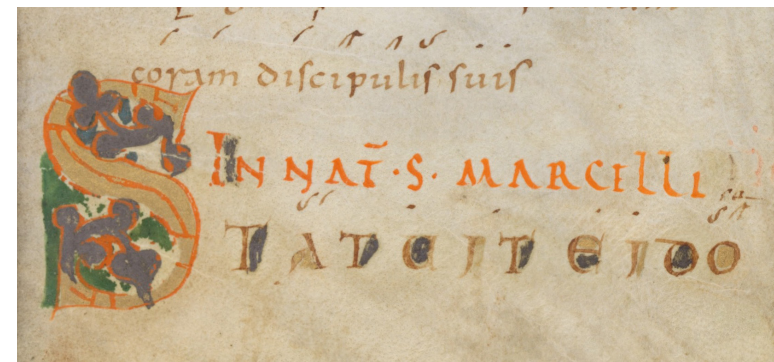 coram discipulis suis
IN NAT̄·S·MARCELLI
STATUIT EI DO